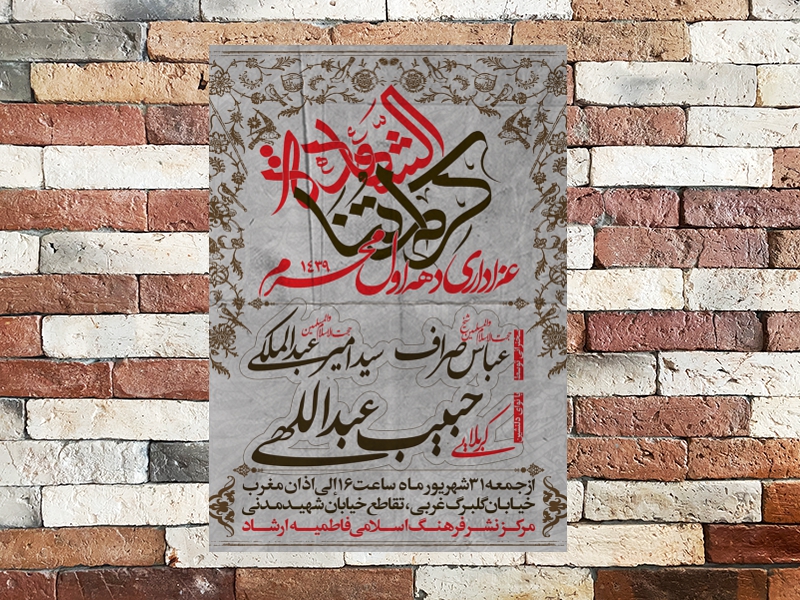 کرامتنا
الشهادة
عزاداری دهه اول محرم ۱۴۳۹
حجت الاسلام والمسلمین شیخ
عباس صراف
حجت الاسلام والمسلمین
سید امیر عبدالملکی
کربلایی
حبیب عبداللهی
از جمعه ۳۱ شهریور ماه ساعت ۱۶ الی اذان مغرب
خیابان گلبرگ غربی، تقاطع خیابان شهید مدنی
مرکز نشر فرهنگ اسلامی فاطمیه ارشاد